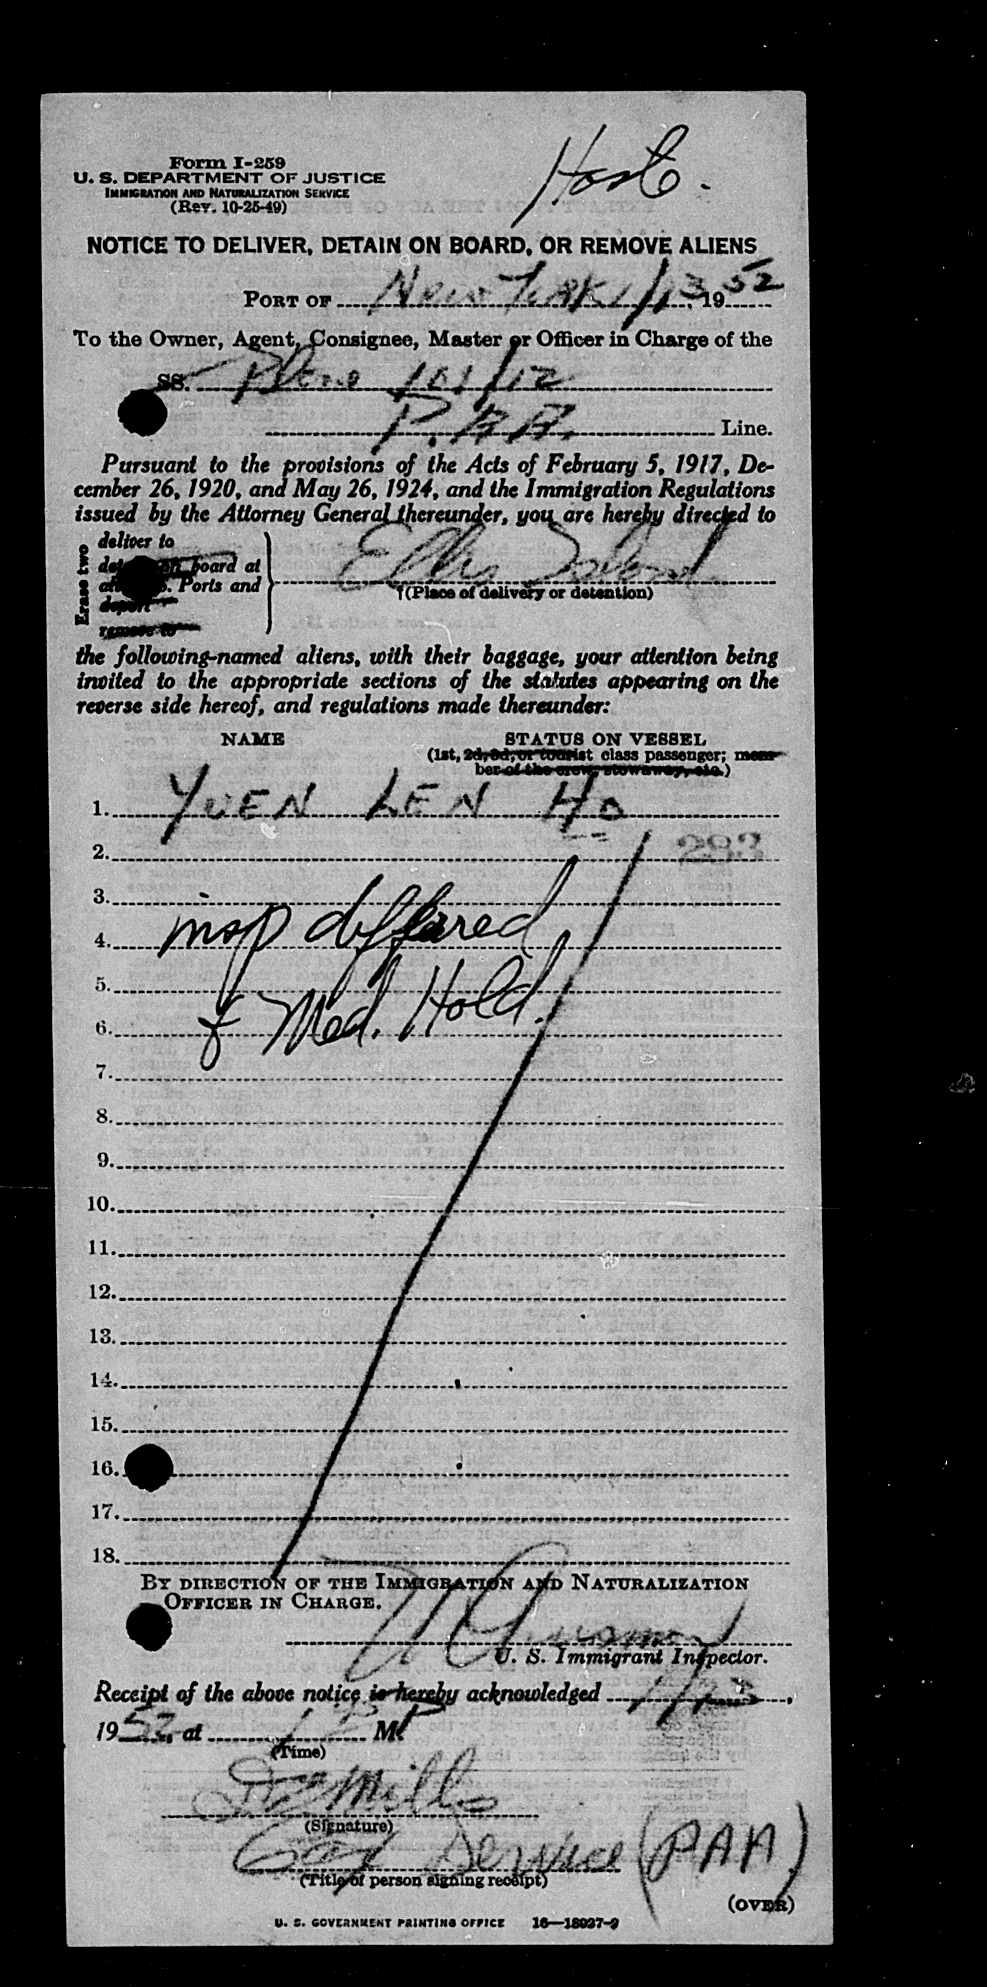 Hosp.
Form I-259
U. S. DEPARTMENT OF JUSTICE
IMMIGRATION AND NATURALIZATION SERVICE
(Rev. 10-25-49)
NOTICE TO DELIVER, DETAIN ON BOARD, OR REMOVE ALIENS
PORT OF New York 1/13, 1952
To the Owner, Agent, Consignee, Master or Officer in Charge of the
SS. Plane 101/12
P.A.A. Line.
Pursuant to the provisions of the Acts of February 5, 1917, De-
cember 26, 1920, and May 26, 1924, and the Immigration Regulations
issued by the Attorney General thereunder, you are hereby directed to
Erase two
deliver to
board at
Ports and
deport
remove to
Ellis Island
(Place of delivery or detention)
the following-named aliens, with their baggage, your attention being
invited to the appropriate sections of the statutes appearing on the
reverse side hereof, and regulations made thereunder:
NAME STATUS ON VESSEL
(1st, 2d, 3d, or tourist class passenger; mem-
ber of the crew, stowaway, etc.)
1. YUEN LEN HO
2. 283
3.
4. insp deffered
5.
6. & Med. Hold.
7.
8.
9.
10.
11.
12.
13.
14.
15.
16.
17.
18.
BY DIRECTION OF THE IMMIGRATION AND NATURALIZATION
OFFICER IN CHARGE.
U. S. Immigrant Inspector.
Receipt of the above notice is hereby acknowledged 1/13,
1952, at M
(Time)
Mills
(Signature)
Service (PAA)
(Title of person signing receipt)
(OVER)
U. S. GOVERNMENT PRINTING OFFICE 16—18027-2